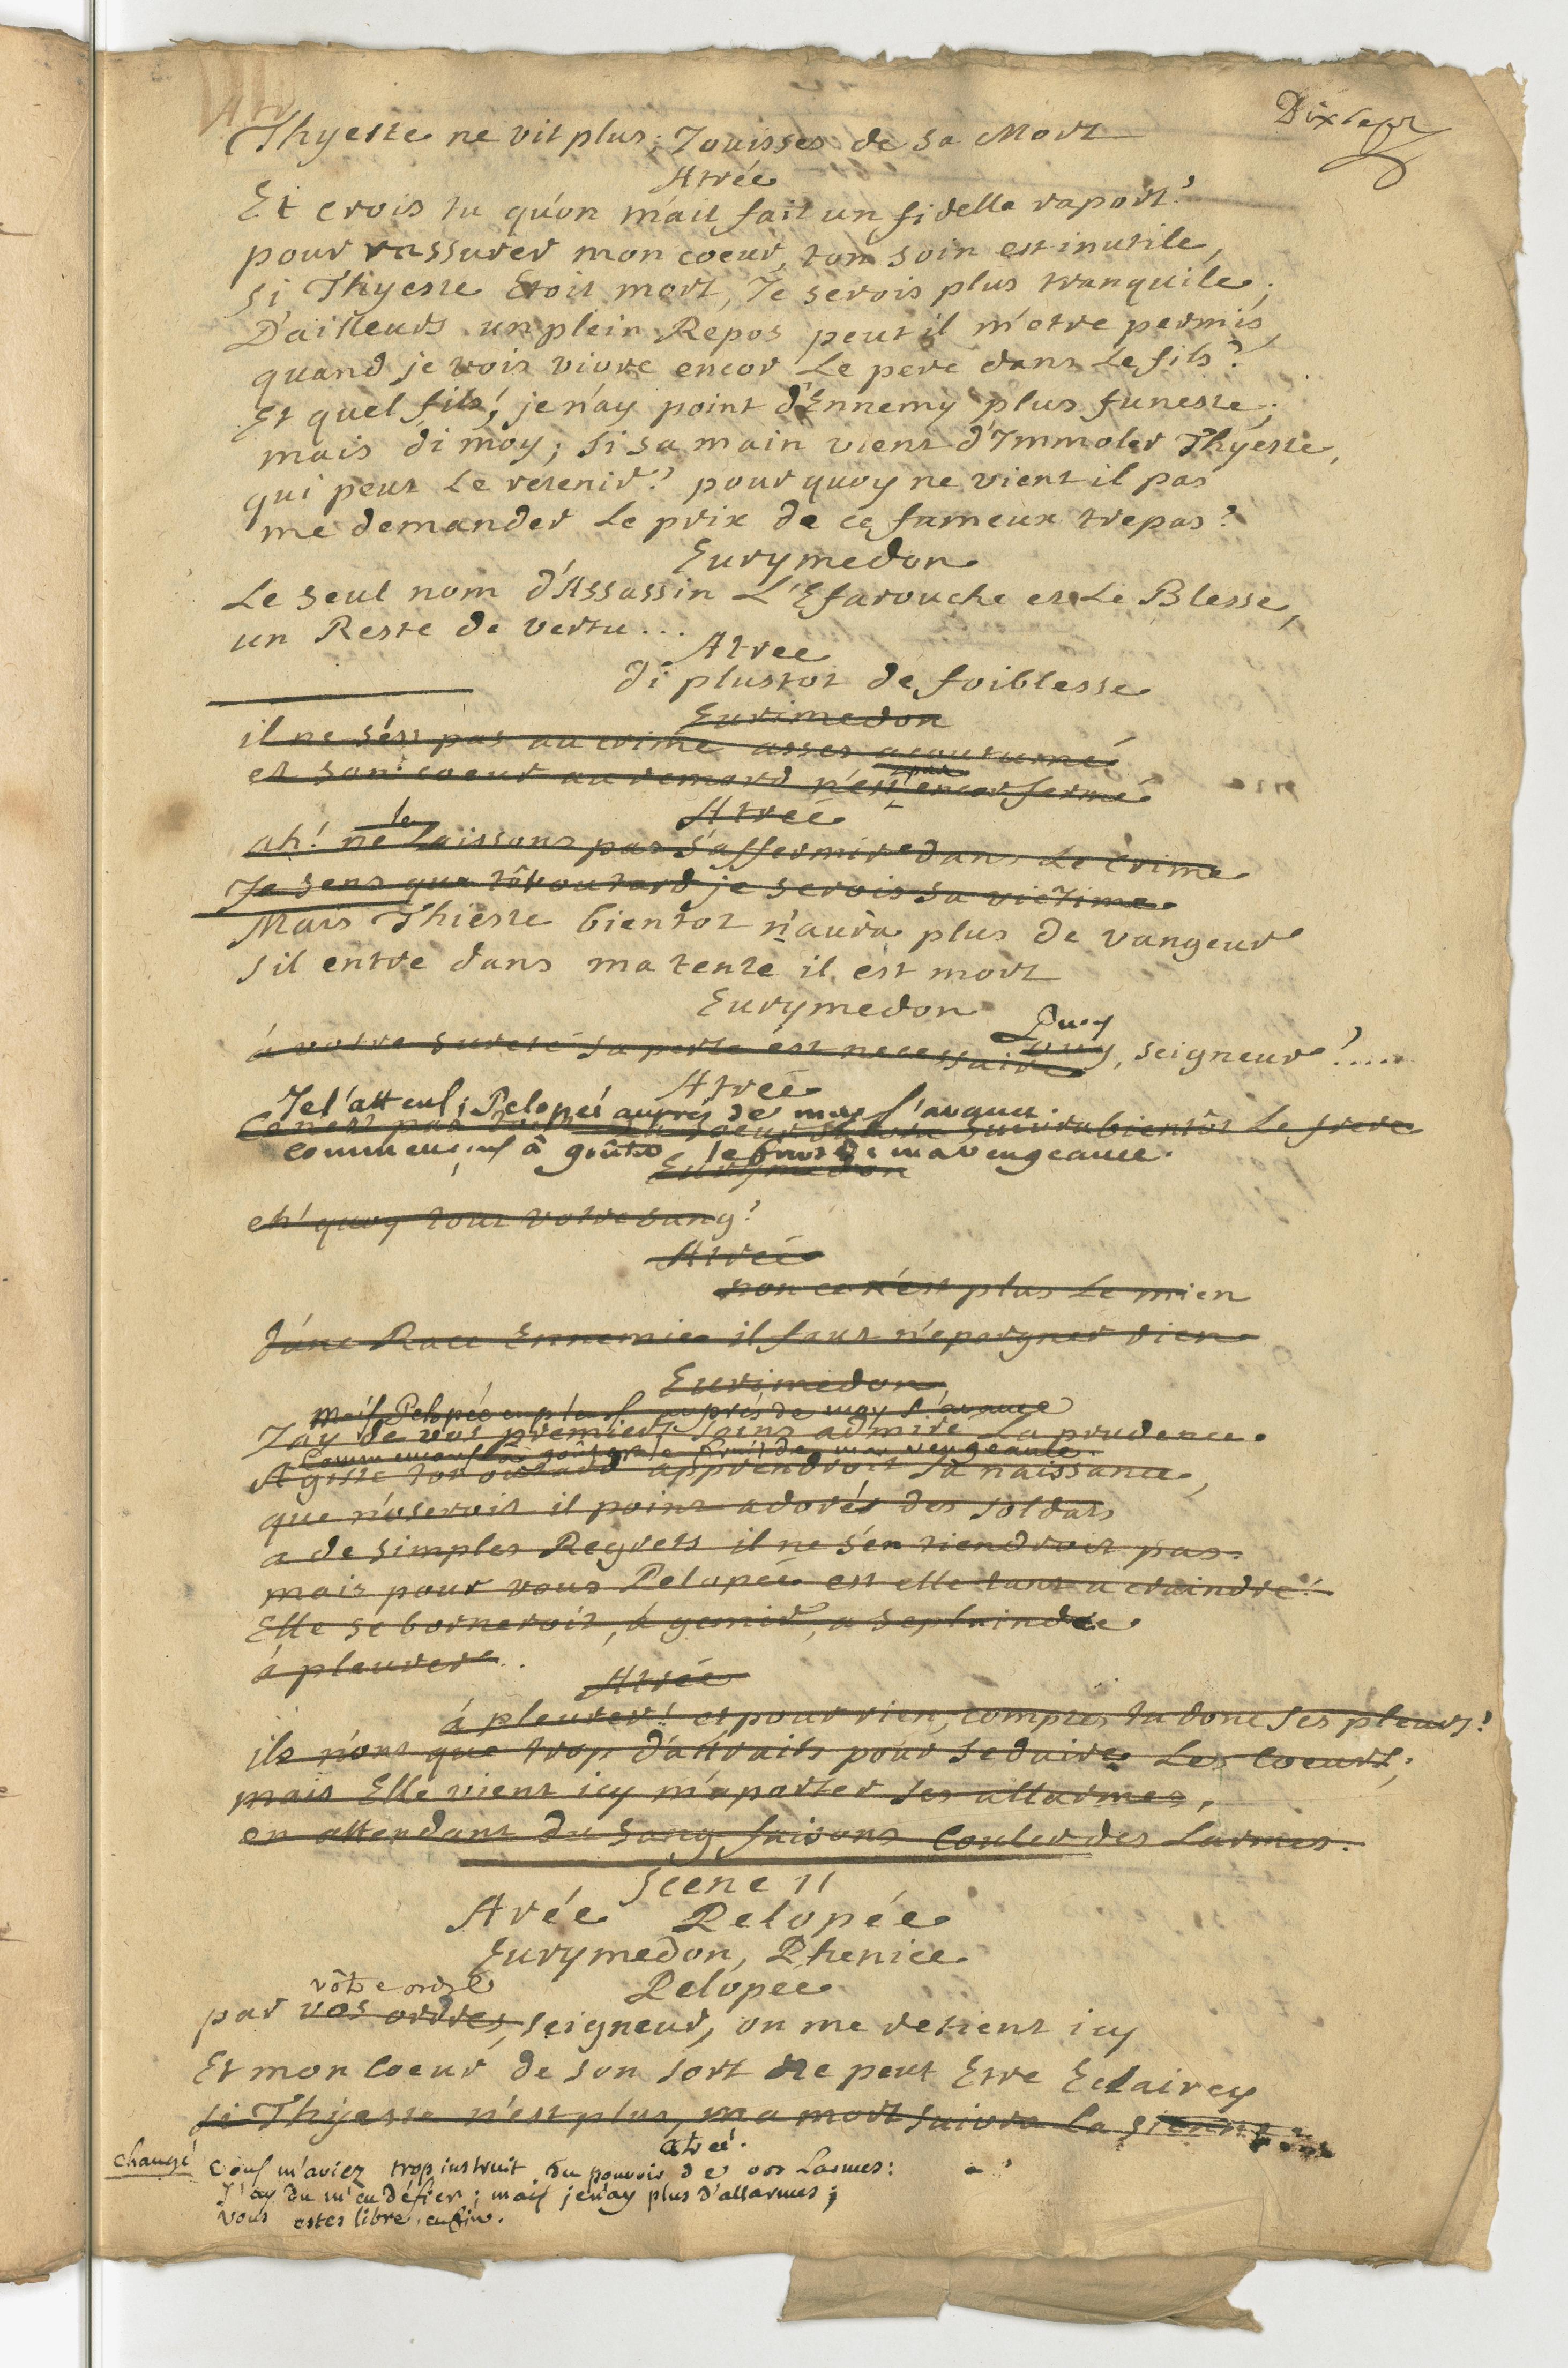 Dix sept
Thyeste ne vit plus; Jouisses de sa Mort
Atrée
Et crois tu qu'on m'ait fait un fidelle raport?
pour rassurer mon coeur, ton soin est inutile,
si Thyeste Etoit mort, Je serois plus tranquile;
D'ailleurs un plein Repos peut il m'etre permis,
quand je vois vivre encor Le pere dans Le fils?
Et quel fils! je n'ay point d'Ennemy plus funeste;
mais di moy; si sa main vient d'Immoler Thyeste,
qui peut Le retenir? pourquoy ne vient il pas
me demander Le prix de ce fameux trepas?
Eurymedon
Le seul nom d'Assassin L'Efarouche et Le Blesse,
un Reste de vertu...
Atree
di plustot de foiblesse
Eurimedon
il ne s'est pas au crime asses acoutumé
et son coeur au remord n'est pas encor fermé
Atrée
ah! ne le Laissons pas s'affermir dans Le crime
Je sens que tôt ou tard je serois sa victime
Mais Thieste bientot n'aura plus de vangeur
s'il entre dans ma tente il est mort
Eurymedon
Quoy
à votre sureté sa perte est necessaire, seigneur?....
Atrée
Je l'attens; Pelopée auprès de moy s'avance.
Ce n'est pas tout la soeur suivra bientôt Le frere
commençons à goûter le fruit de ma vengeance.
Eurymedon
eh' quoy tout votre sang?
Atrée
non ce n'est plus Le mien
d'une Race Ennemie il faut n'epargner rien
Eurimedon
Mais Pelopée auprès de moy s'avance
J'ay de vos premiers soins admiré La prudence.
Commençons à goûter le fruit de ma vengeance.
Agiste tot ou tard apprendroit sa naissance,
que n'oseroit il point adoré des soldats
a de simples Regrets il ne s'en tiendroit pas.
mais pour vous Pelopée est elle tant a craindre!
Elle se borneroit, à gemir, a se plaindre
à pleurer..
Atrée
à pleurer! et pour rien, comptes tu donc ses pleurs?
ils n'ont que trop d'attraits pour seduire Les Coeurs;
mais Elle vient icy m'aporter ses allarmes,
en attendant du sang faisons Couler des Larmes.
Scene 11
Atrée Pelopée
Eurymedon, Phenice
Pelopee
vôtre ordre
par vos ordres, seigneur, on me retient icy
Et mon Coeur de son sort ne peut Etre Eclaircy
si Thyeste n'est plus, ma mort suivra la sienne
atreé.
changé vous m'aviez trop instruit du pouvoir de vos Larmes:
J'ay du m'en défier; mais je n'ay plus d'allarmes;
vous estes libre enfin.